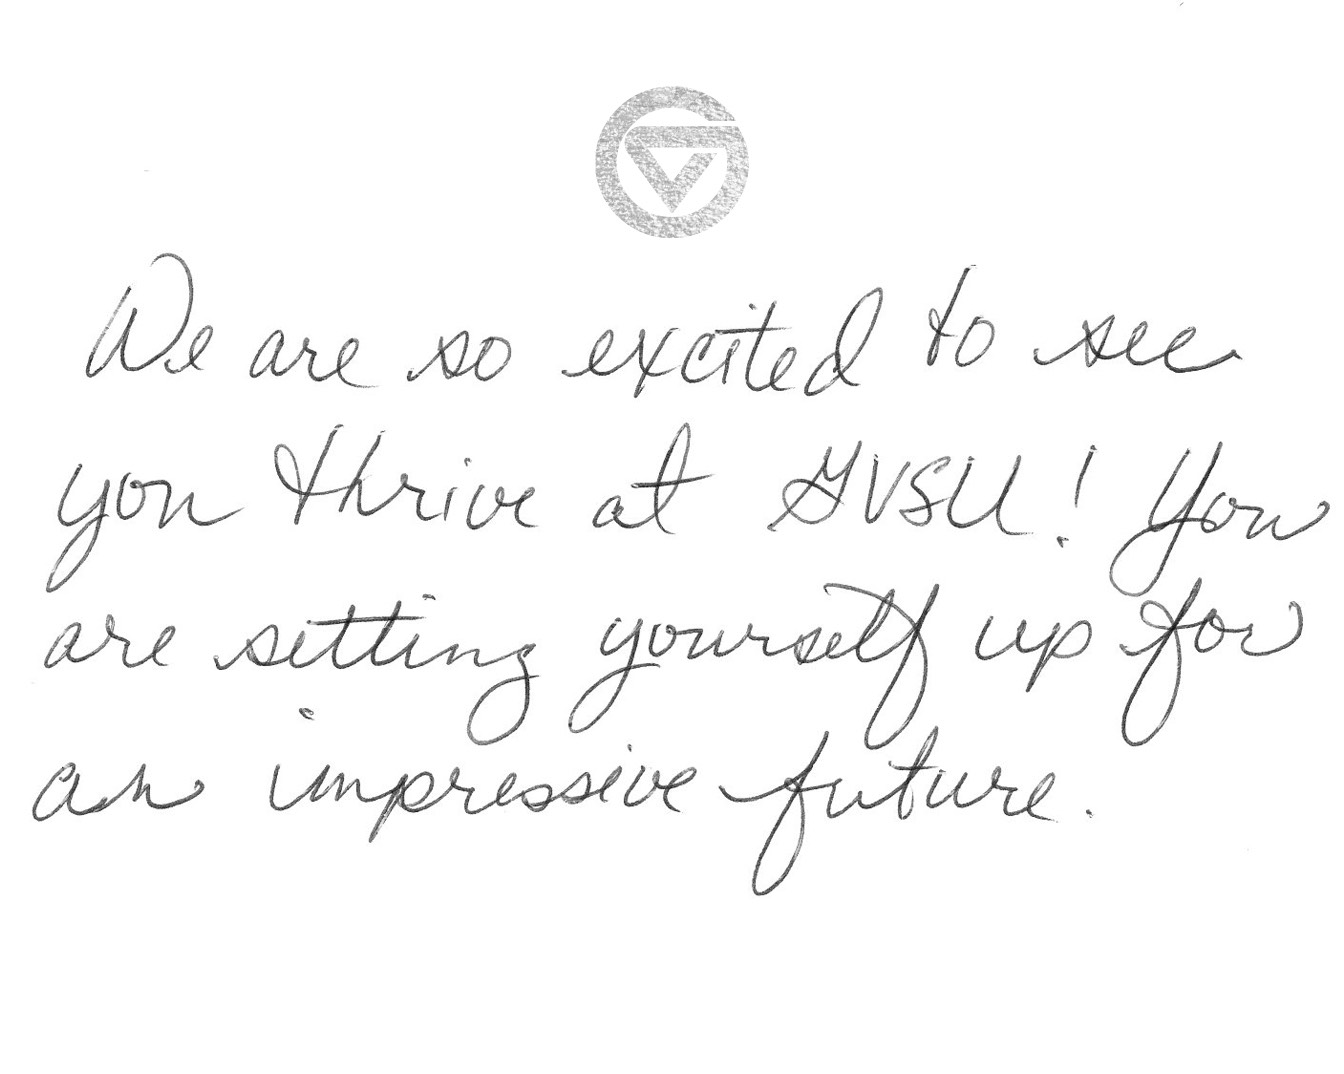 We are so excited to see
you thrive at GVSU! You
are setting yourself up for
an impressive future.